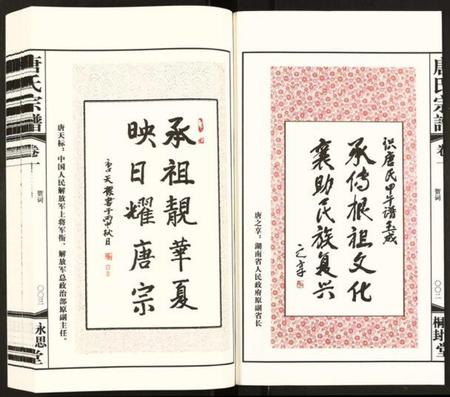 唐氏宗譜
卷一
贺词
〇〇二
桐封堂
识唐氏甲午谱玉成
承传根祖文化
襄助民族复兴
之享
唐之享：湖南省人民政府原副省长
承祖靓華夏
映日耀唐宗
李天標書于丙申秋日
唐天标：中国人民解放军上将军衔、解放军总政治部原副主任。
唐氏宗譜
卷一
贺词
〇〇三
永思堂